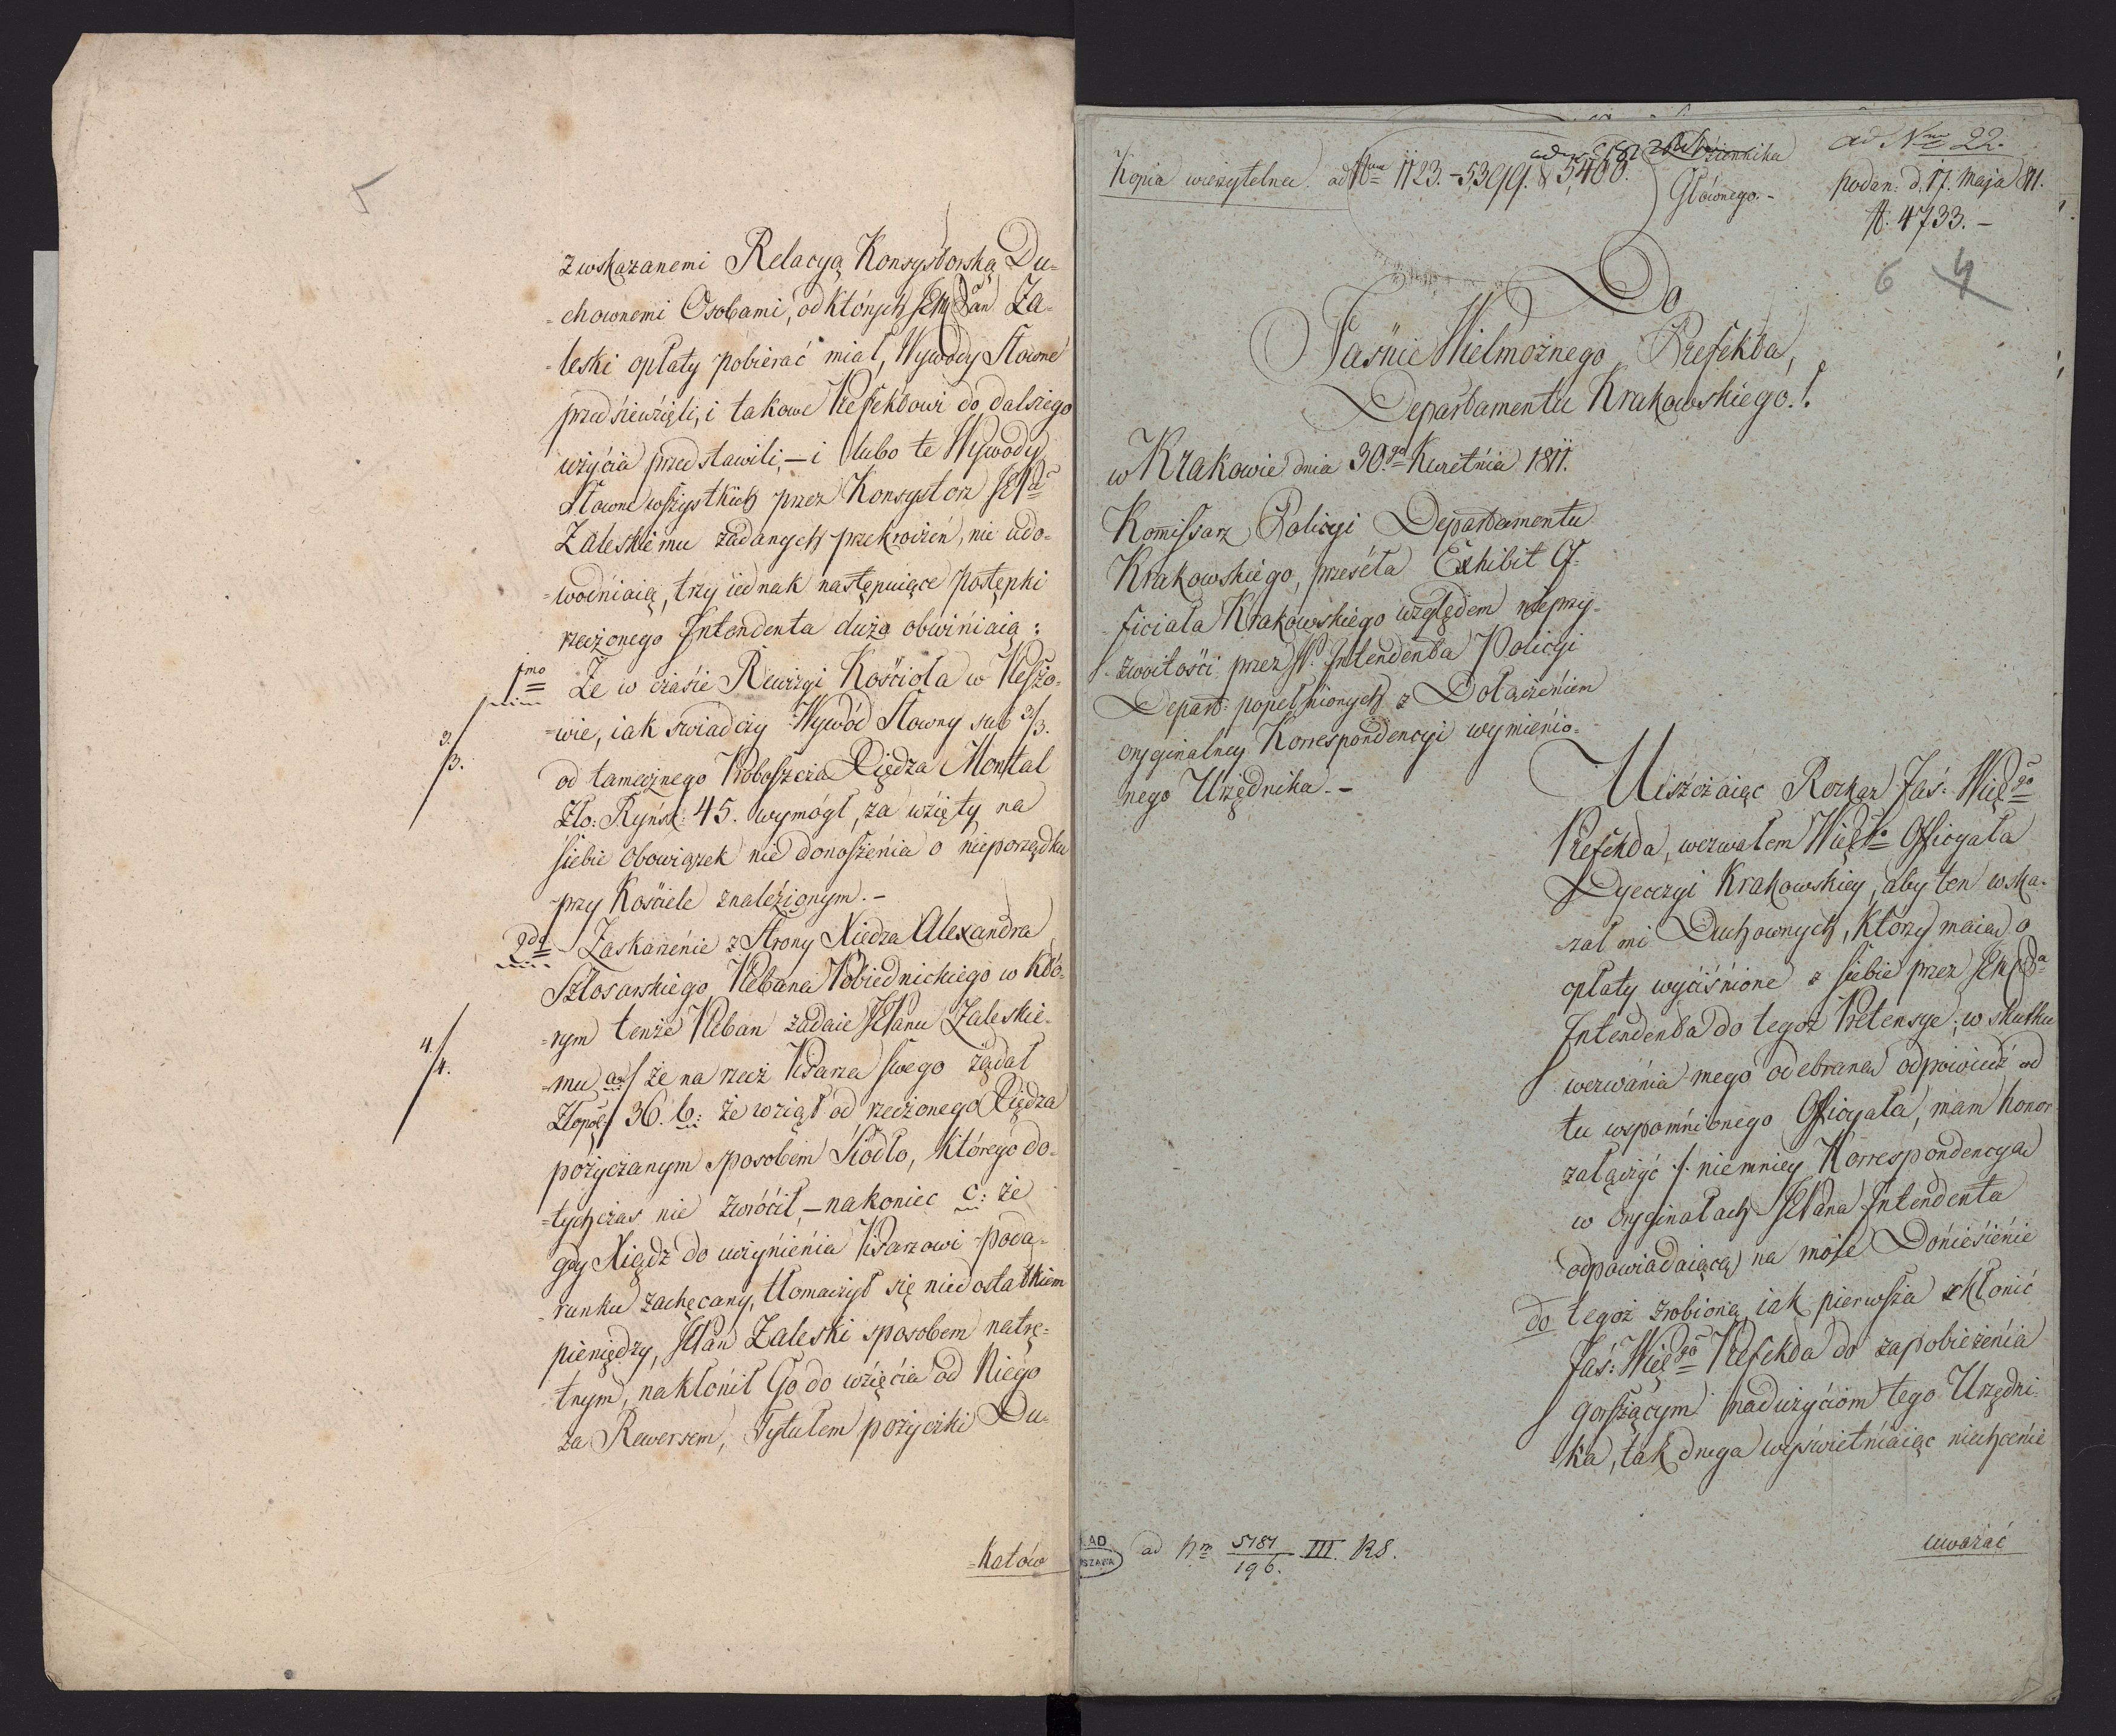 5
z wskazanemi Relacyą Konsystorską Du-
-chownemi Osobami, od których JPan Za-
-leski opłaty pobierać miał, Wywody Słowne
przedsiewzięli, i takowe Prefektowi do dalszego
użycia przedstawili, – i lubo te Wywody
Słowne wszystkich przez Konsystorz JP
Zaleskiemu zadanych przekroczeń, nie udo-
-wodniaią, trzy iednak następuiące postępki
rzeczonego Intendenta dużo obwiniaią:
1mo Że w czasie Rewizyi Kościoła w
-wie, iak świadczy Wywód Słowny sub 3/3.
3./3.
od tamecznego Proboszcza Xiędza Montal
Zło: Ryńsk: 45. wymógł, za wzięty na
siebie obowiązek nie donoszenia o nieporządku
przy Kościele znalezionym. –
2do Zaskarżenie z Strony Xiędza Alexandra
Szlosarskiego Plebana Pobiednickiego w któ-
-rym tenże Pleban zadaie JPanu Zaleskie-
4./4.
-mu a/ że na rzecz Pisarza swego żądał
Złopol: 36. b: że wziął od rzeczonego Xiędza
pożyczanym sposobem Siodło, którego do-
-tychczas nie zwrócił, – nakoniec c: że
gdy Xiądz do uczynienia Pisarzowi poda-
-runku zachęcany, tłomaczył się niedostatkiem
pieniędzy, JPan Zaleski sposobem natrę-
-tnym, nakłonił Go do wzięcia od Niego
za Rewersem, Tytułem pożyczki Du-
-katów
Kopia wierzytelna. ad Nra 1123. – 5399. & 5,400. Dziennika
Głównego. –
ad Nrm 22.
podan: d. 17. Maja 811.
N. 4733. –
6 4
Do
Jaśnie Wielmożnego Prefekta,
Departamentu Krakowskiego.!.
w Krakowie dnia 30go Kwietnia 1811.
Komissarz Policyi Departamentu
Krakowskiego, przeséła Exhibit Of-
-ficiała Krakowskiego względem nieprzy-
-zwoitości przez W. Intendenta Policyi
Depart: popełnionych z Dołączeniem
oryginalney Korrespondencyi wymienio-
-nego Urzędnika. –
Uiszczaiąc Rozkaz Jaś: Wielgo
Prefekta, wezwałem Wielgo Officyała
Dyecezyi Krakowskiey, aby ten wska-
-zał mi Duchownych, którzy maią o
opłaty wyciśnione z siebie przez JP
Intendenta do tegoż Pretensye; w skutku
wezwania mego odebraną odpowiedź od
tu wspomnionego Officyała, mam honor
załączyć ./. niemniey Korrespondencyą
w oryginałach JPana Intendenta
odpowiadaiącą na moje Doniesienie
do tegoż zrobioną, iak pierwsza skłonić
Jaś: Wielgo Prefekta do zapobieżenia
gorszącym nadużyciom tego Urzędni-
-ka, tak druga wyświetniaiąc niechcenie
uważać
ad Nm 5181/196. III. RS.